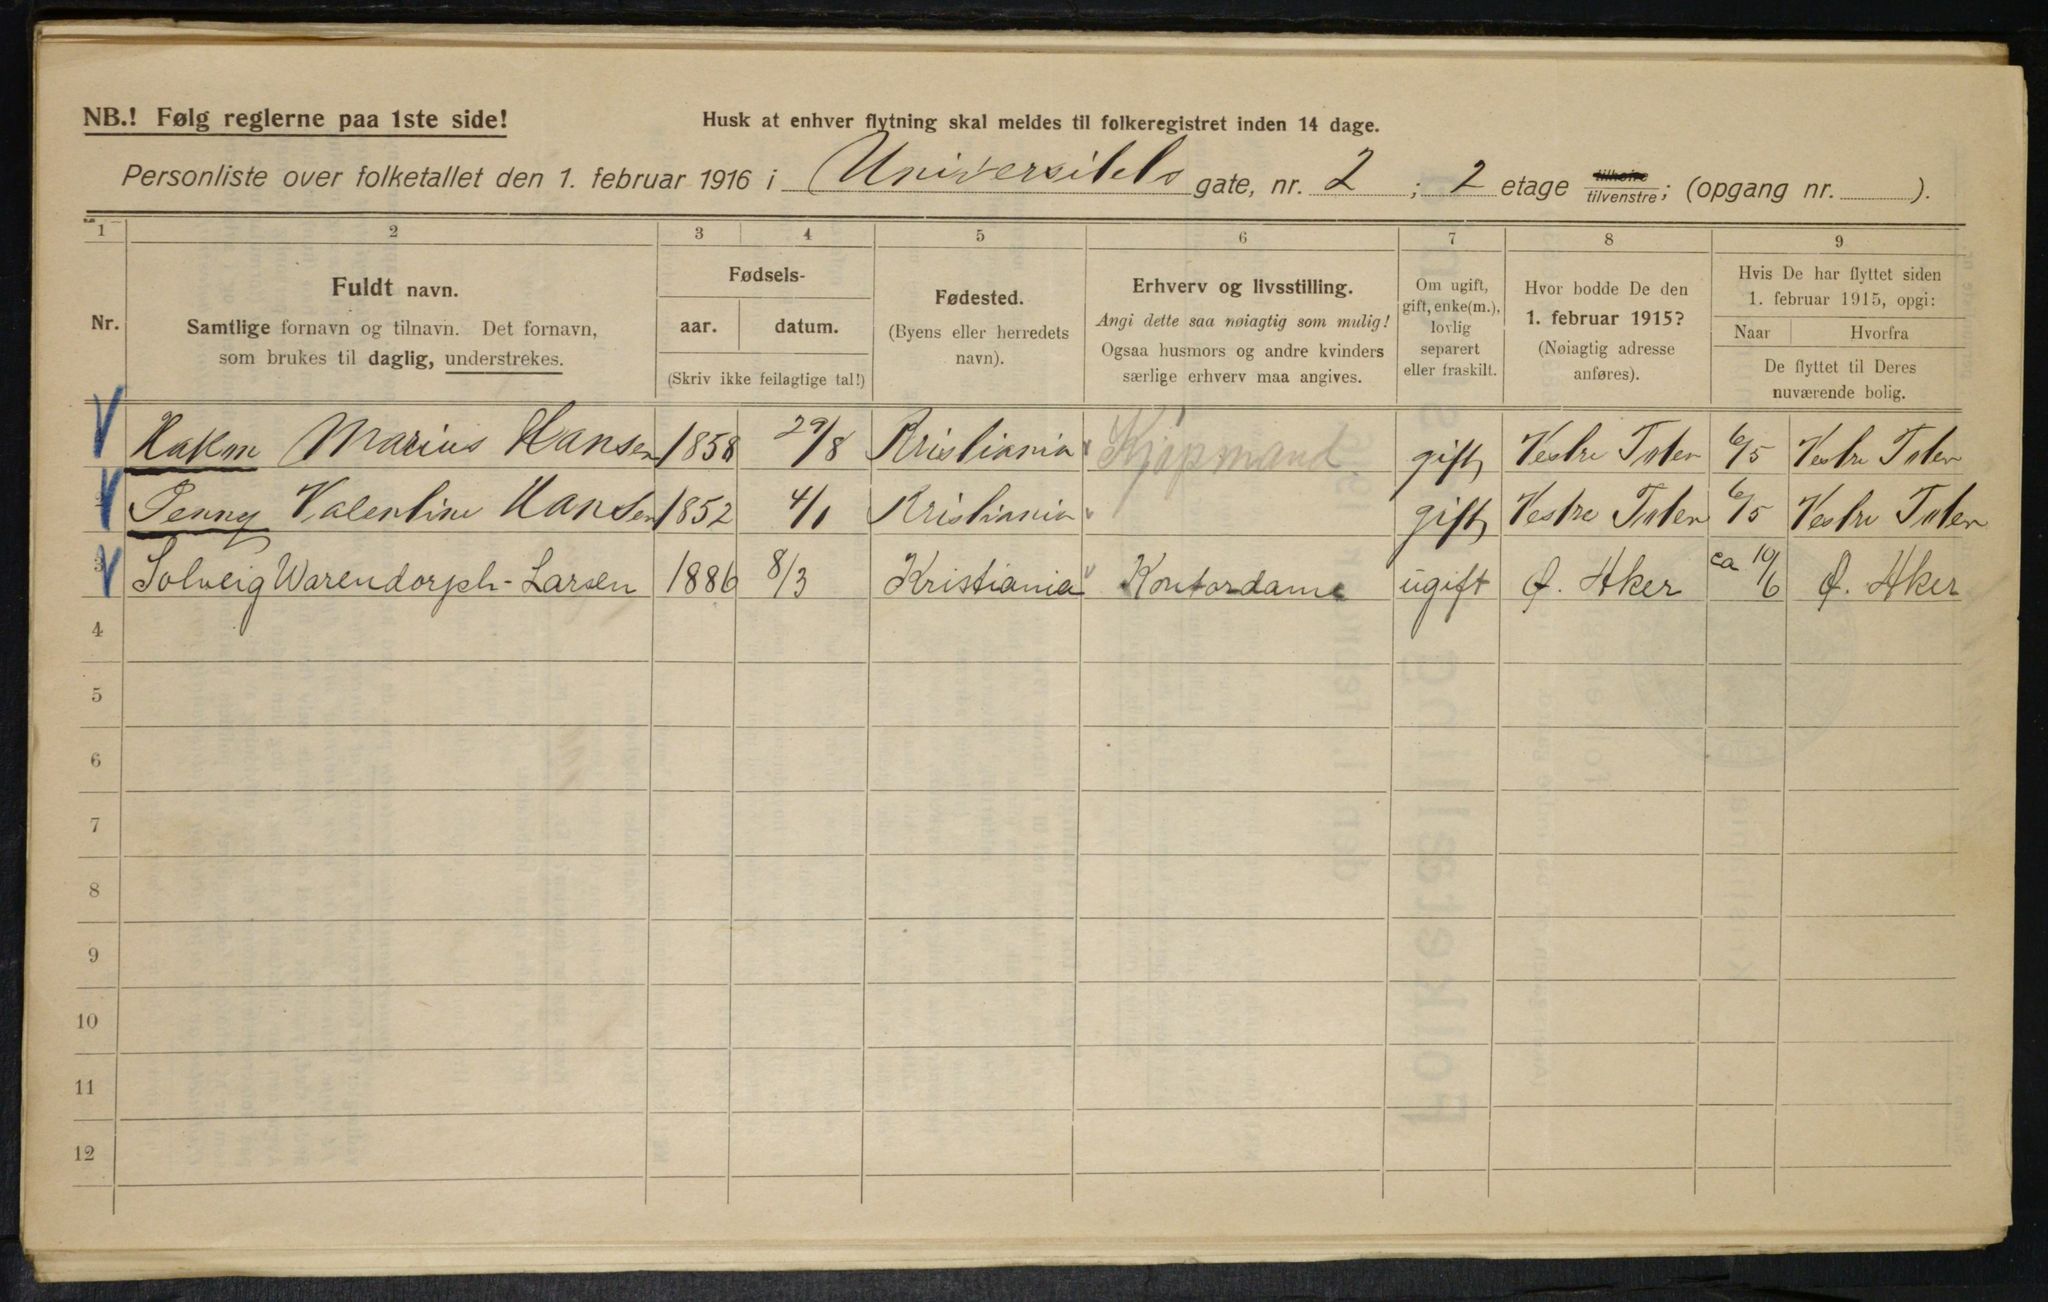 NB.! Følg reglerne paa 1ste side!
Husk at enhver flytning skal meldes til folkeregistret inden 14 dage.
Personliste over folketallet den 1. februar 1916 i Universitets gate, nr. 2 ; 2 etage tilhøire/tilvenstre; (opgang nr. ).
1 2 3 4 5 6 7 8 9
Nr.
Fuldt navn.
Samtlige fornavn og tilnavn. Det fornavn,
som brukes til daglig, understrekes.
Fødsels-
aar. datum.
(Skriv ikke feilagtige tal!)
Fødested.
(Byens eller herredets
navn).
Erhverv og livsstilling.
Angi dette saa nøiagtig som mulig!
Ogsaa husmors og andre kvinders
særlige erhverv maa angives.
Om ugift,
gift, enke(m.),
lovlig
separert
eller fraskilt.
Hvor bodde De den
1. februar 1915?
(Nøiagtig adresse
anføres).
Hvis De har flyttet siden
1. februar 1915, opgi:
Naar Hvorfra
De flyttet til Deres
nuværende bolig.
Hakon Marius Hansen 1858 29/8 Kristiania Kjøpmand gift Vestre Toten 6/5 Vestre Toten
2 Jenny Valentine Hansen 1852 4/1 Kristiania gift Vestre Toten 6/5 Vestre Toten
3 Solveig Warendorph-Larsen 1886 8/3 Kristiania Kontordame ugift Ø. Aker ca 10/6 Ø. Aker
4
5
6
7
8
9
10
11
12